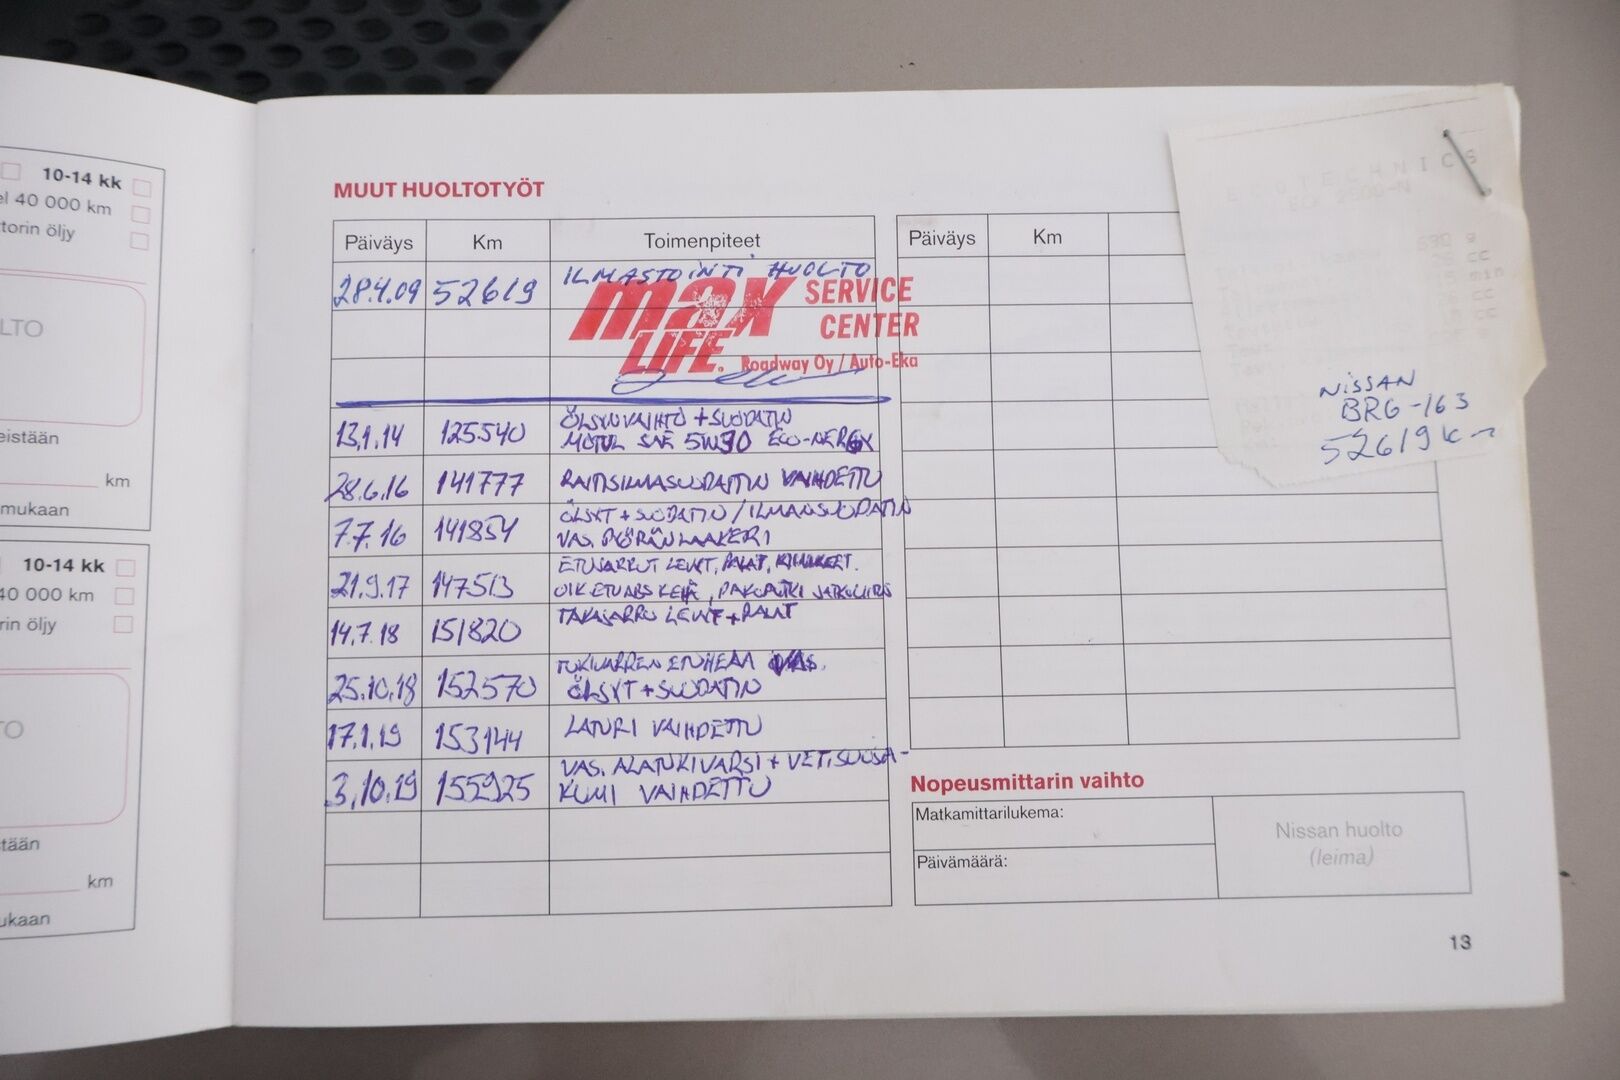 10-14 kk
el 40 000 km
torin öljy
LTO
eistään
km
mukaan
10-14 kk
40 000 km
rin öljy
TO
tään
km
ukaan
MUUT HUOLTOTYÖT
Päiväys Km Toimenpiteet
28.4.09 52619 ILMASTOINTI HUOLTO
max SERVICE
LIFE. CENTER
Roadway Oy / Auto-Eka
13.1.14 125540 ÖLJYNVAIHTO + SUODATIN
MOTUL SAE 5W30 ECO-NERGY
28.6.16 141777 RAITISILMASUODATIN VAIHDETTU
7.7.16 141854 ÖLJYT + SUODATIN / ILMANSUODATIN
VAS. PYÖRÄNLAAKERI
21.9.17 147513 ETUJARRUT LEVYT, PALAT,
OIK ETU ABS KEHÄ, PAKOPUTKI
14.7.18 151820 TAKAJARRU LEVYT + PALAT
25.10.18 152570 TUKIVARREN ETUHELA VAS.
ÖLJYT + SUODATIN
17.1.19 153144 LATURI VAIHDETTU
3.10.19 155925 VAS. ALATUKIVARSI + VET.SUOJA-
KUMI VAIHDETTU
Päiväys Km
ECOTECHNICS
ECK 2500-N
690 g
NISSAN
BRG-163
52619 km
Nopeusmittarin vaihto
Matkamittarilukema:
Päivämäärä:
Nissan huolto
(leima)
13